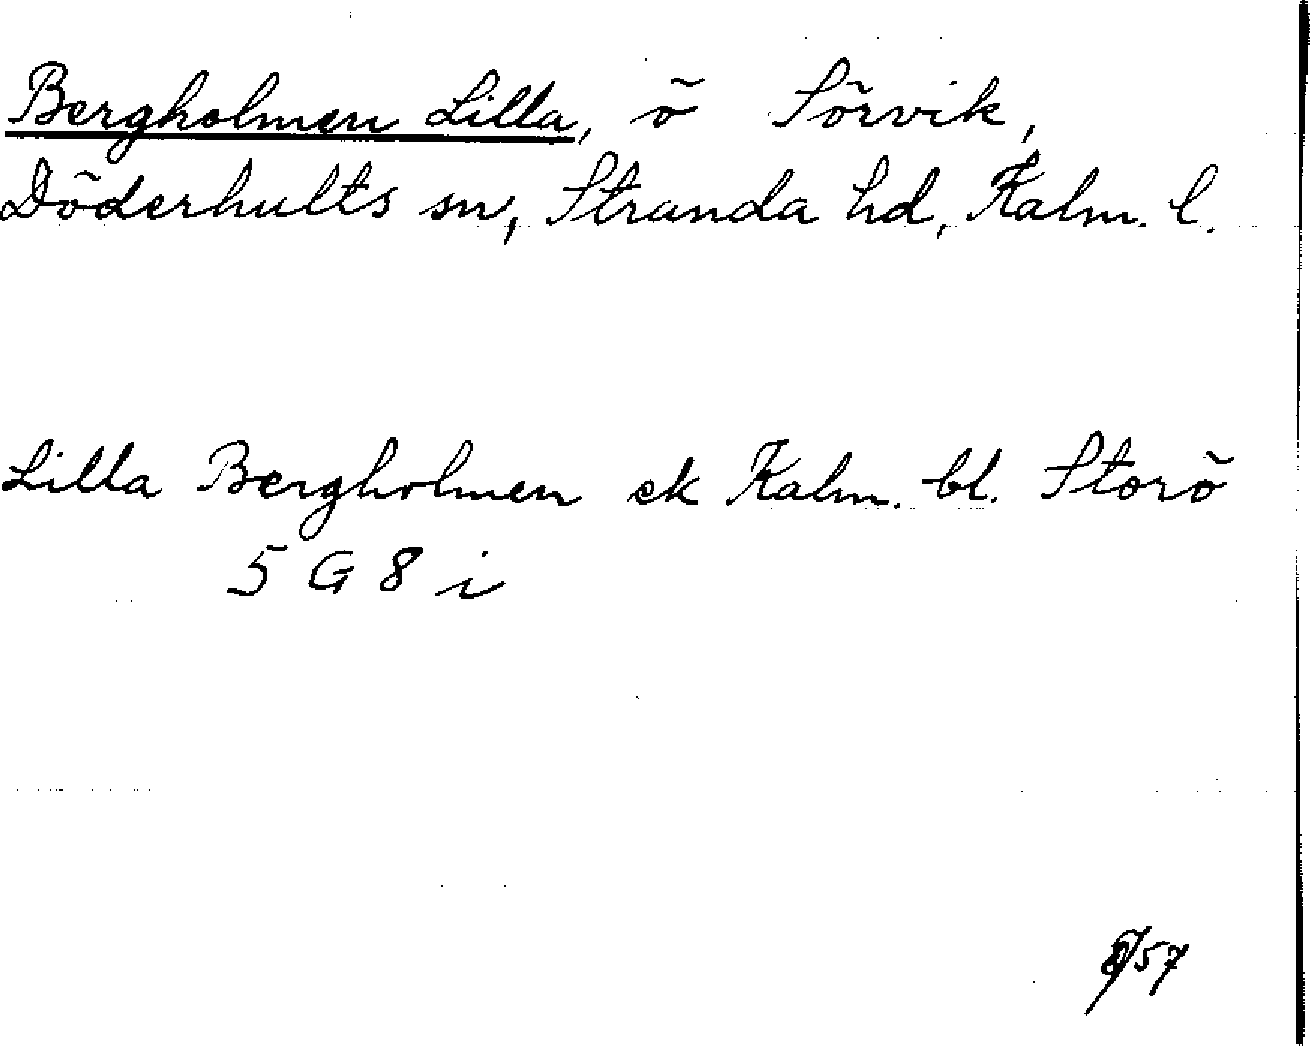 Bergholmen Lilla, ö Sörvik,
Döderhults sn, Stranda hd, Kalm. l.
Lilla Bergholmen ek Kalm. bl. Storö
5 G 8 i